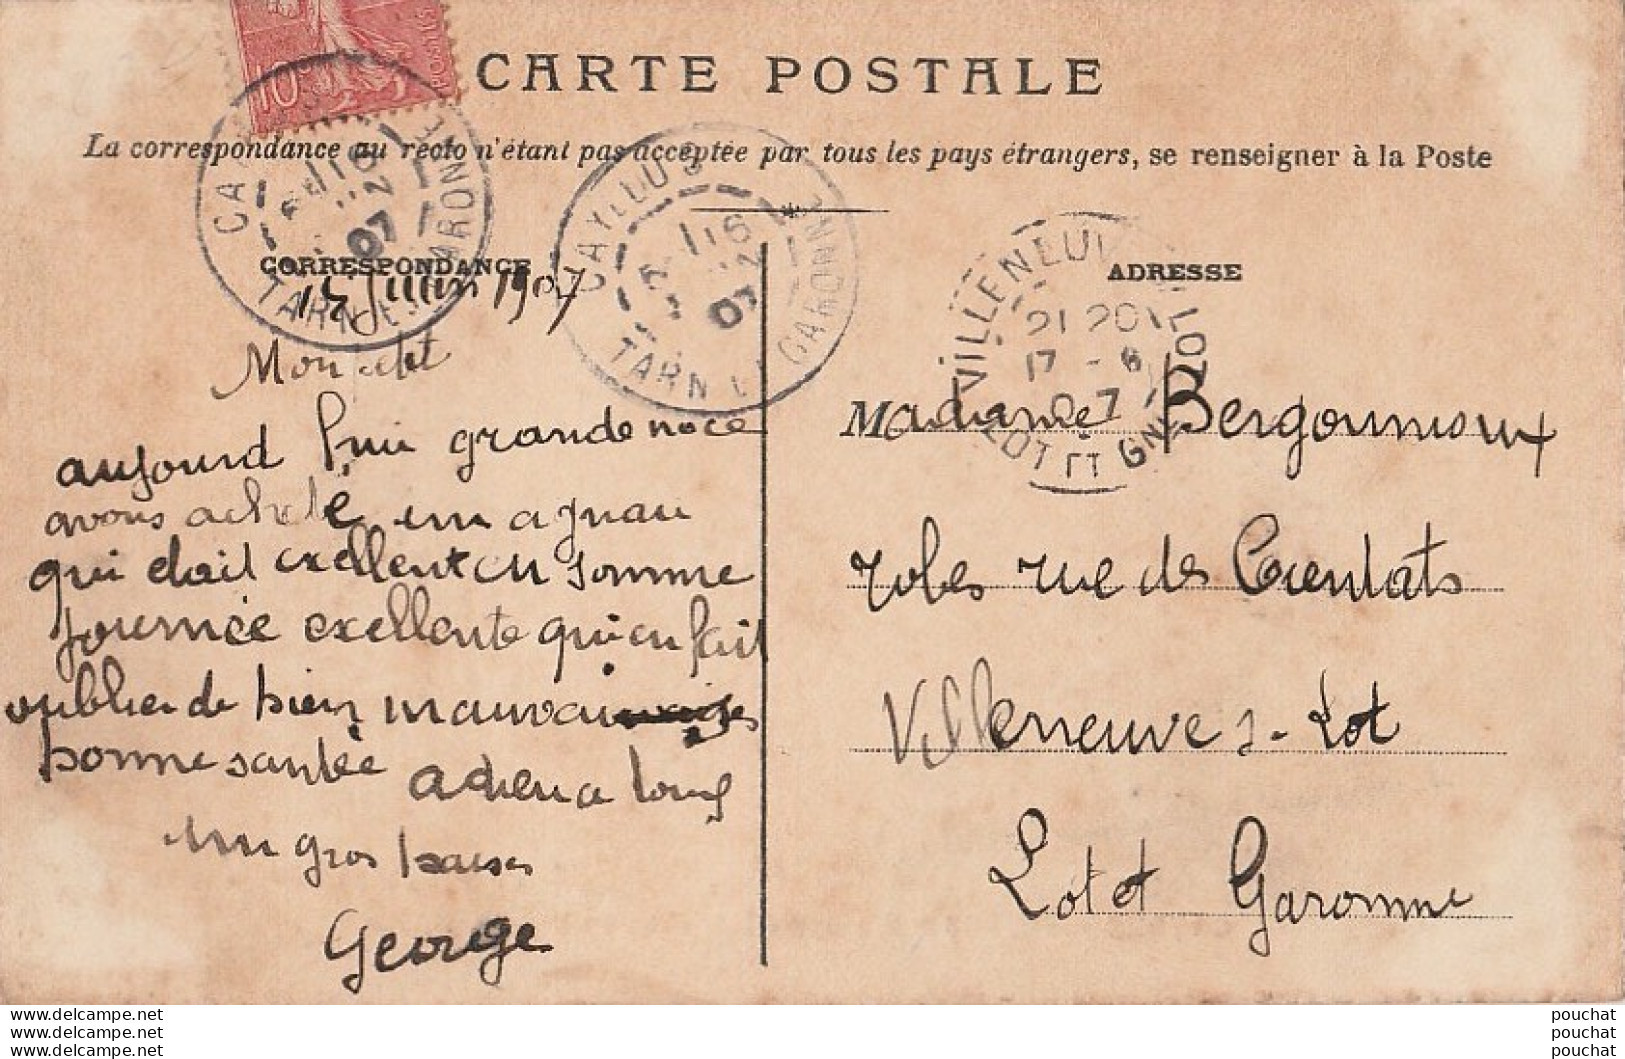 10c
POSTES
CARTE POSTALE
La correspondance au recto n'étant pas acceptée par tous les pays étrangers, se renseigner à la Poste
CAYLUS
TARN ET GARONNE
07
CAYLUS
TARN ET GARONNE
07
VILLENEUVE LOT
21 20
17 - 6
07
LOT ET G
CORRESPONDANCE
Juin 1907
Mon
aujourd hui grande noce
avons acheté un agnau
qui etait exellent en somme
journée exellente qui en fait
oublier de bien mauvaises
bonne santée adieu a tous
un gros baiser
George
ADRESSE
Madame Bergounioux
robes rue des
Villeneuve s. Lot
Lot et Garonne
www.delcampe.net
www.delcampe.net
www.delcampe.net
pouchat
pouchat
pouchat